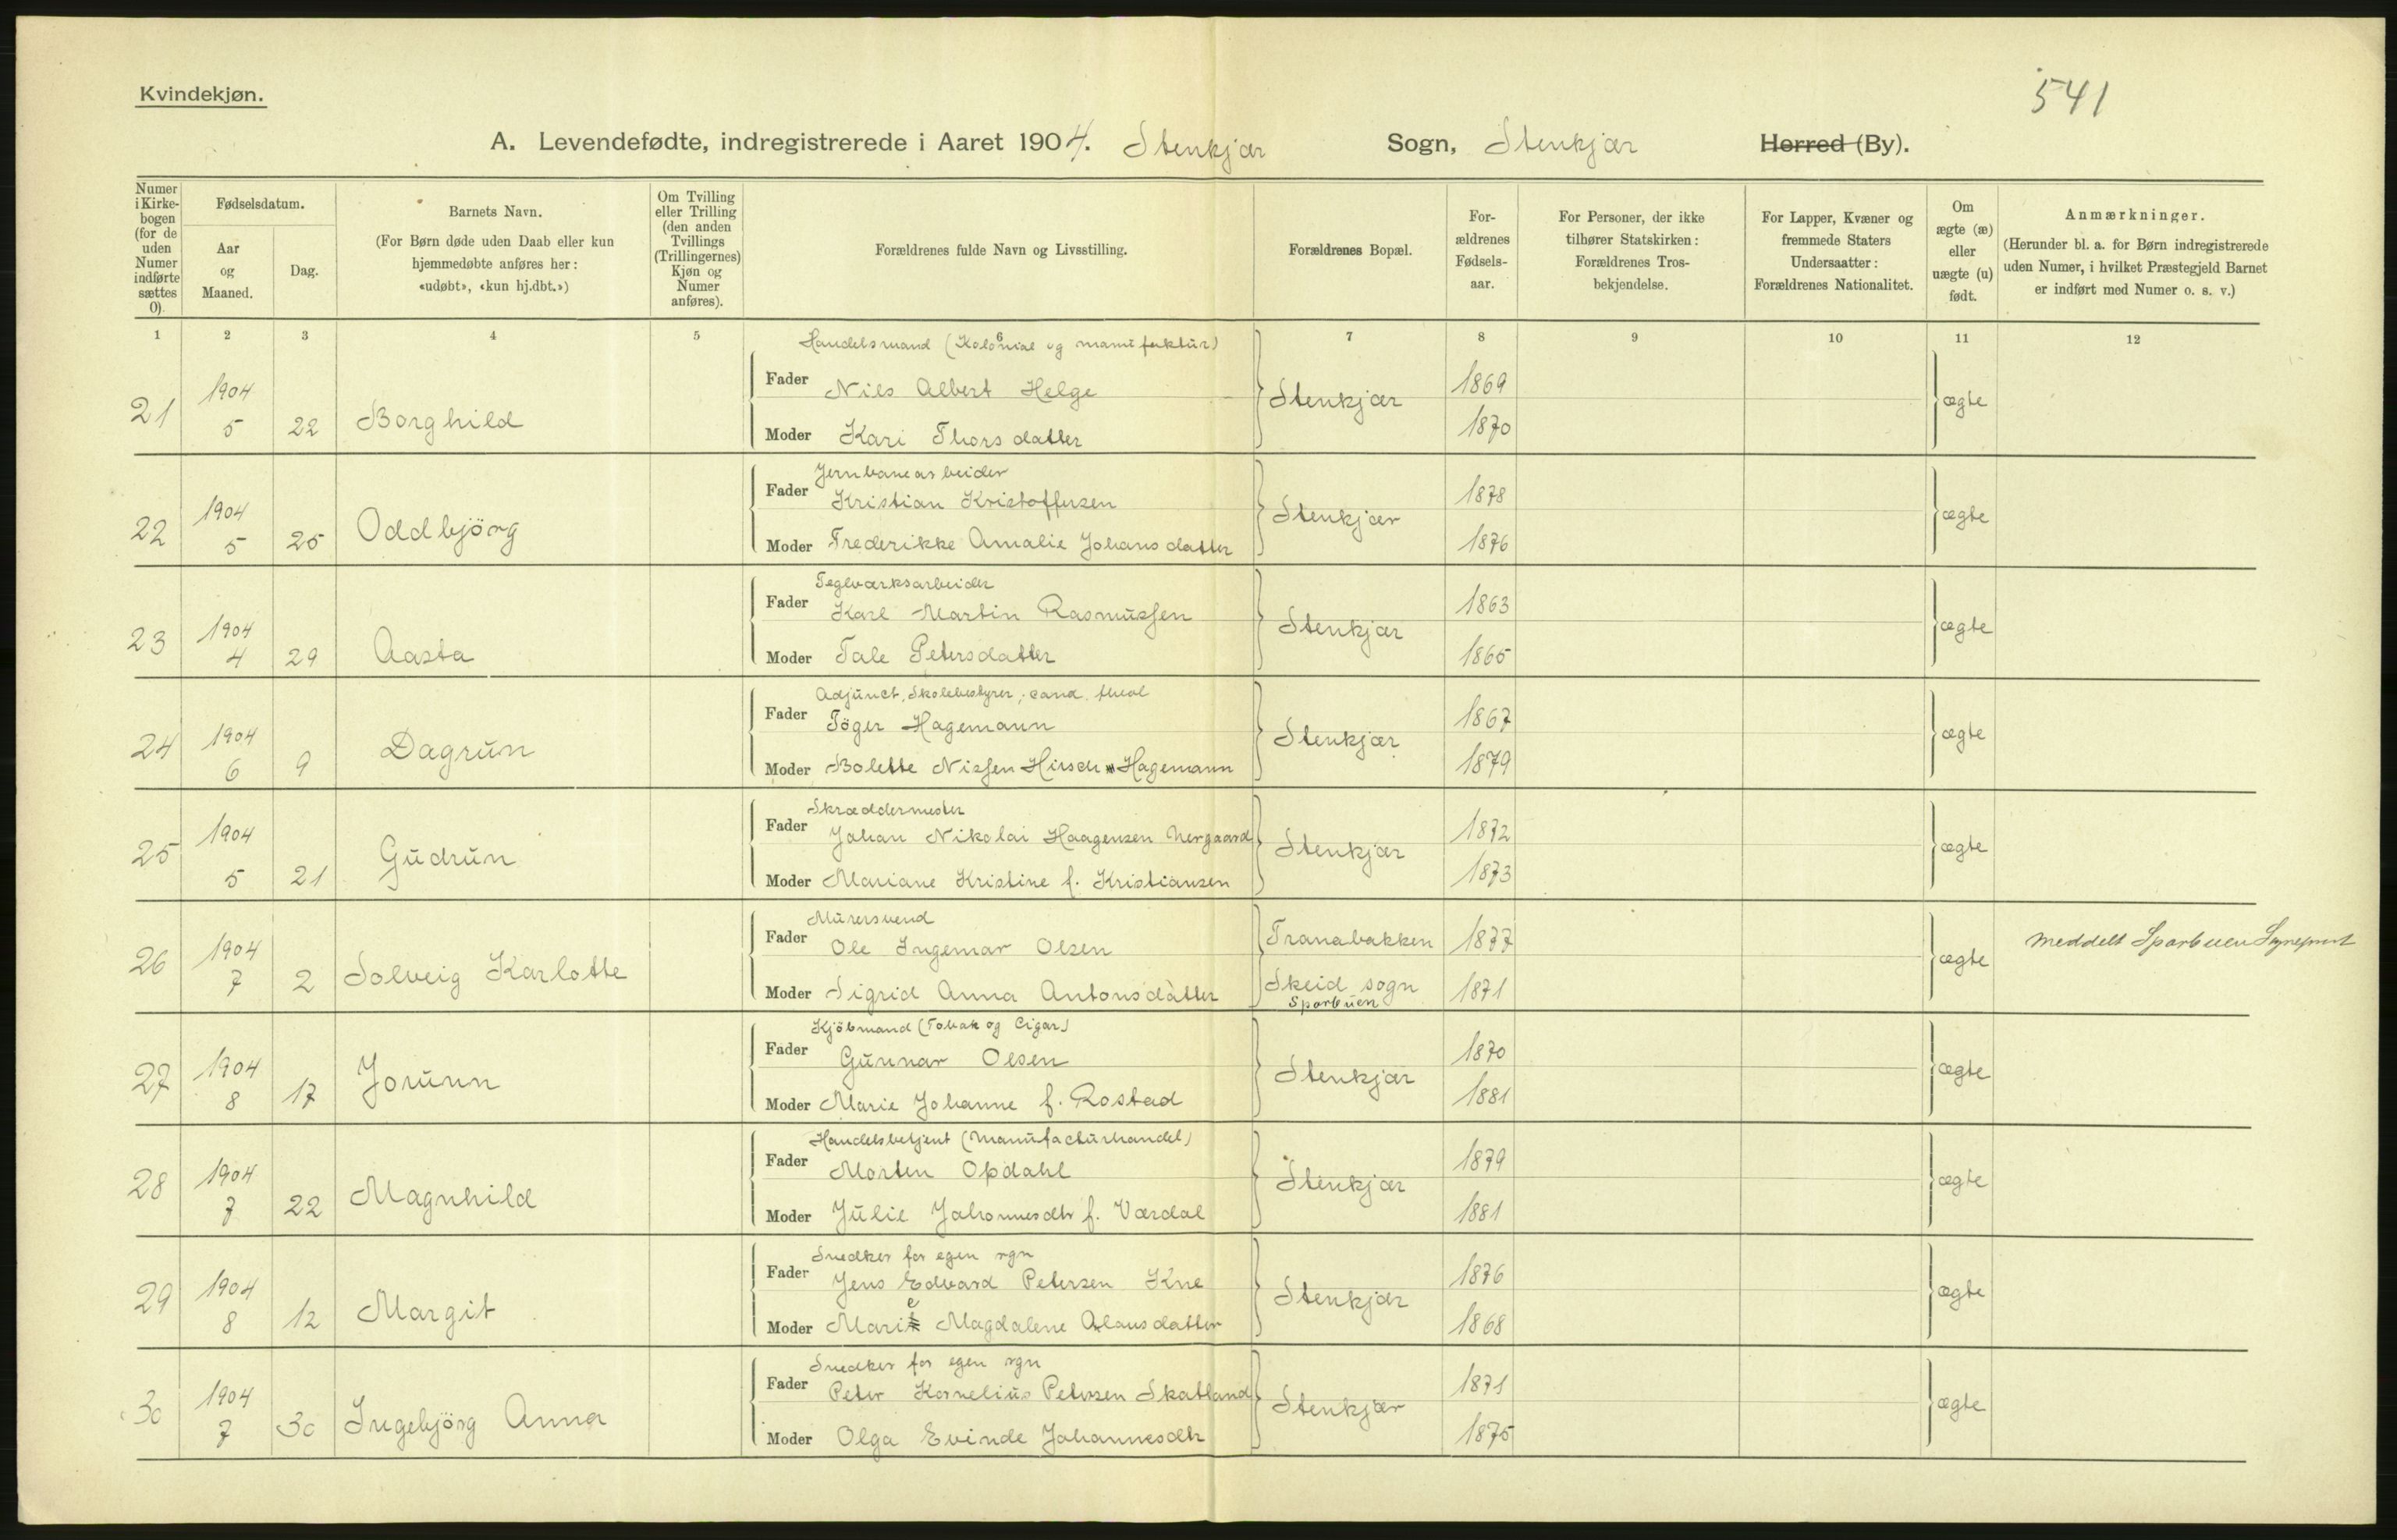 Kvindekjøn.
541
A. Levendefødte, indregistrerede i Aaret 1904. Stenkjær Sogn, Stenkjær Herred (By).
Numer i Kirkebogen (for de uden Numer indførte sættes 0).
Fødselsdatum.
Aar og Maaned.
Dag.
Barnets Navn.
(For Børn døde uden Daab eller kun hjemmedøbte anføres her: «udøbt», «kun hj.dbt.»)
Om Tvilling eller Trilling (den anden Tvillings (Trillingernes) Kjøn og Numer anføres).
Forældrenes fulde Navn og Livsstilling.
Forældrenes Bopæl.
For-
ældrenes
Fødsels-
aar.
For Personer, der ikke tilhører Statskirken: Forældrenes Tros-
bekjendelse.
For Lapper, Kvæner og fremmede Staters Undersaatter: Forældrenes Nationalitet.
Om ægte (æ) eller uægte (u) født.
Anmærkninger.
(Herunder bl. a. for Børn indregistrerede uden Numer, i hvilket Præstegjeld Barnet er indført med Numer o. s. v.)
1 2 3 4 5 6 7 8 9 10 11 12
Handelsmand (Kolonial og manufaktur)
21 1904 5 22 Borghild Fader Nils Albert Helge Stenkjær 1869 ægte
Moder Kari Thorsdatter 1870
Jernbanearbeider
22 1904 5 25 Oddbjörg Fader Kristian Kristoffersen Stenkjær 1878 ægte
Moder Frederikke Amalie Johansdatter 1876
Teglværksarbeider
23 1904 4 29 Aasta Fader Karl Martin Rasmussen Stenkjær 1863 ægte
Moder Tale Petersdatter 1865
Adjunct, Skolebestyrer, cand. theol
24 1904 6 9 Dagrun Fader Töger Hagemann Stenkjær 1867 ægte
Moder Bolette Nissen Hirsch Hagemann 1879
Skræddermester
25 1904 5 21 Gudrun Fader Johan Nikolai Haagensen Nergaard Stenkjær 1872 ægte
Moder Mariane Kristine f. Kristiansen 1873
Murersvend
26 1904 7 2 Solveig Karlotte Fader Ole Ingemar Olsen Tranabakken 1877 ægte meddelt Sparbuen
Moder Sigrid Anna Antonsdatter Skeid sogn 1871
Sparbuen
Kjöbmand (Tobak og Cigar)
27 1904 8 17 Jorunn Fader Gunnar Olsen Stenkjær 1870 ægte
Moder Marie Johanne f. Rostad 1881
Handelsbetjent (Manufacturhandel)
28 1904 7 22 Magnhild Fader Morten Opdahl Stenkjær 1879 ægte
Moder Julie Johannesdtr f. Værdal 1881
Snedker for egen rgn
29 1904 8 12 Margit Fader Jens Edvard Petersen Kne Stenkjær 1876 ægte
Moder Marie Magdalene Olausdatter 1868
Snedker for egen rgn
30 1904 7 30 Ingebjörg Anna Fader Peter Kornelius Petersen Skatland Stenkjær 1871 ægte
Moder Olga Evinde Johannesdtr 1875